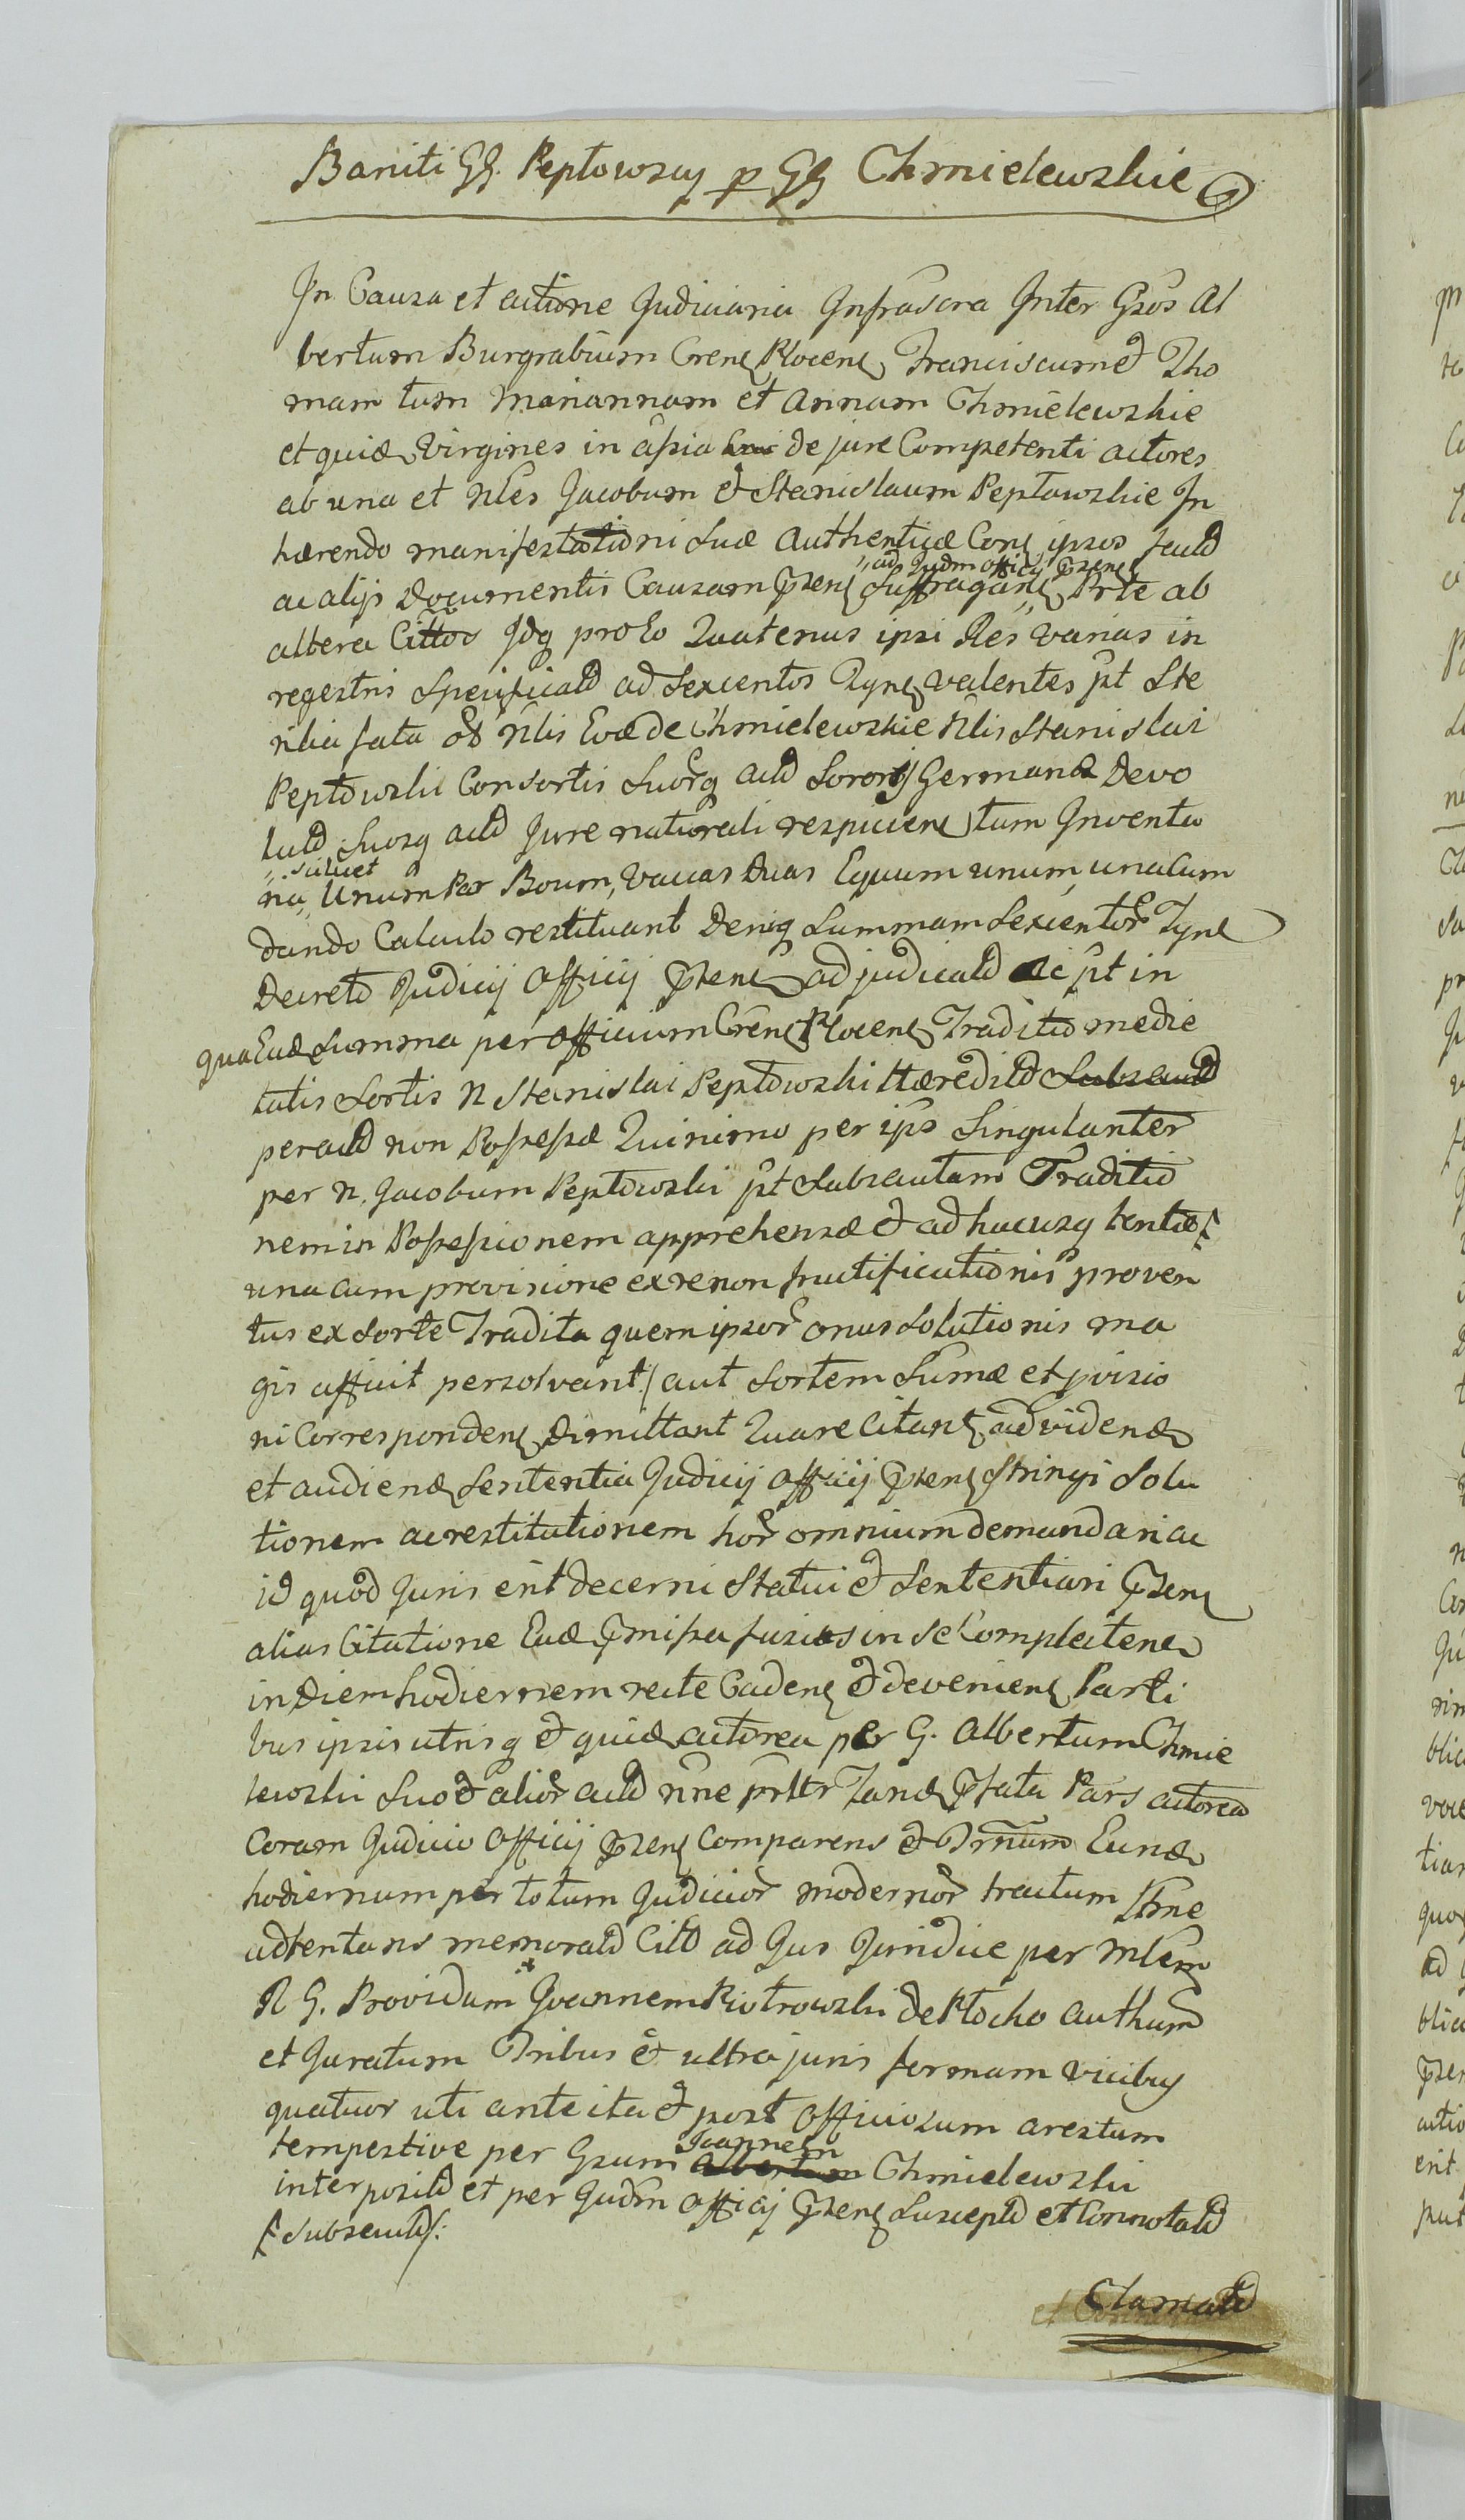 Baniti GG. Peptowscy p GG Chmielewskie
In Causa et actione Judiciaria Infrascra Inter Gsos Al
bertum Burgrabium Crens Plocens Franciscum et Tho
mam tum Mariannam et Annam Chmielewskie
et quidem Virgines in assia de jure Competenti actores
ab una et Nles Jacobum et Stanislaum Peptowskie In
hærendo manifestationi suæ Authenticæ Cons ipsos factd
ad Judm officij psens
ac alijs Documentis Causam psens Suffragans Prte ab
altera Cittos Idq pro Eo Quatenus ipsi Res varias in
regestris Specificatd ad Sexcentos Tyns valentes pt Ste
rilia fata ob Nlis Evæ de Chmielewskie Nlis Stanislai
Peptowski Consortis Suorq actd Sororis Germanæ Devo
lutd Suosq actd Jure naturali respiciens tum Inventa
scilicet
na, Unum Par Boum, Vaccas Duas Equum unum, unacum
dando Calculo restituant Deniq Summam Sexcentor Tyns
Decreto Judicij Officij Psens adjudicatd ac pt in
qua Eadem Summa per Officium Crens Plocens Traditio medie
tatis Sortis N Stanislai Peptowski Hæreditd Subsecutd
per actd non Possessæ Quinimo per ips Singulanter
per N. Jacobum Peptowski pt Subsecutam Traditio
nem in Possessionem apprehensæ et adhucusq tentæ
una cum provisione ex re non fructificationis proven
tus ex Sorte Tradita quem ipsor onus Solutionis ma
gis afficit persolvant / aut Sortem Sumæ et pvisio
ni Correspondens dimittant Quare Citans ad videndum
et audiendum Sententia Judicij Officij Psens Stringi Solu
tionem ac restitutionem hor omnium demandari ac
id quod Juris erit decerni Statui et Sententiari Psens
alias Citatione Eadem Pmissa fusius in se Complectens
in Diem hodiernem recte Cadens et deveniens Parti
bus ipsis utrisq et quidem actorea per G. Albertum Chmie
lewski Suo et alior actd nne prttr Tandem Pfata Pars actorea
Coram Judicio Officij Psens Comparens et Trnum Eundem
hodiernum per totum Judicior modernor tractum Ttrne
adtentans memoratd Cittd ad Jus Juridice per Mlem
R G. Providum Joannem Piotrowski de Płocko Authum
et Juratum Tribus et ultra juris formam vicibus
quatuor uti ante ita et post Officiosum arestum
Joannem
tempestive per Gsum Albertum Chmielewski
interpositd et per Judm Officij Psens Susceptd et Connotatd
/ Subsecutd /:
Clamatd